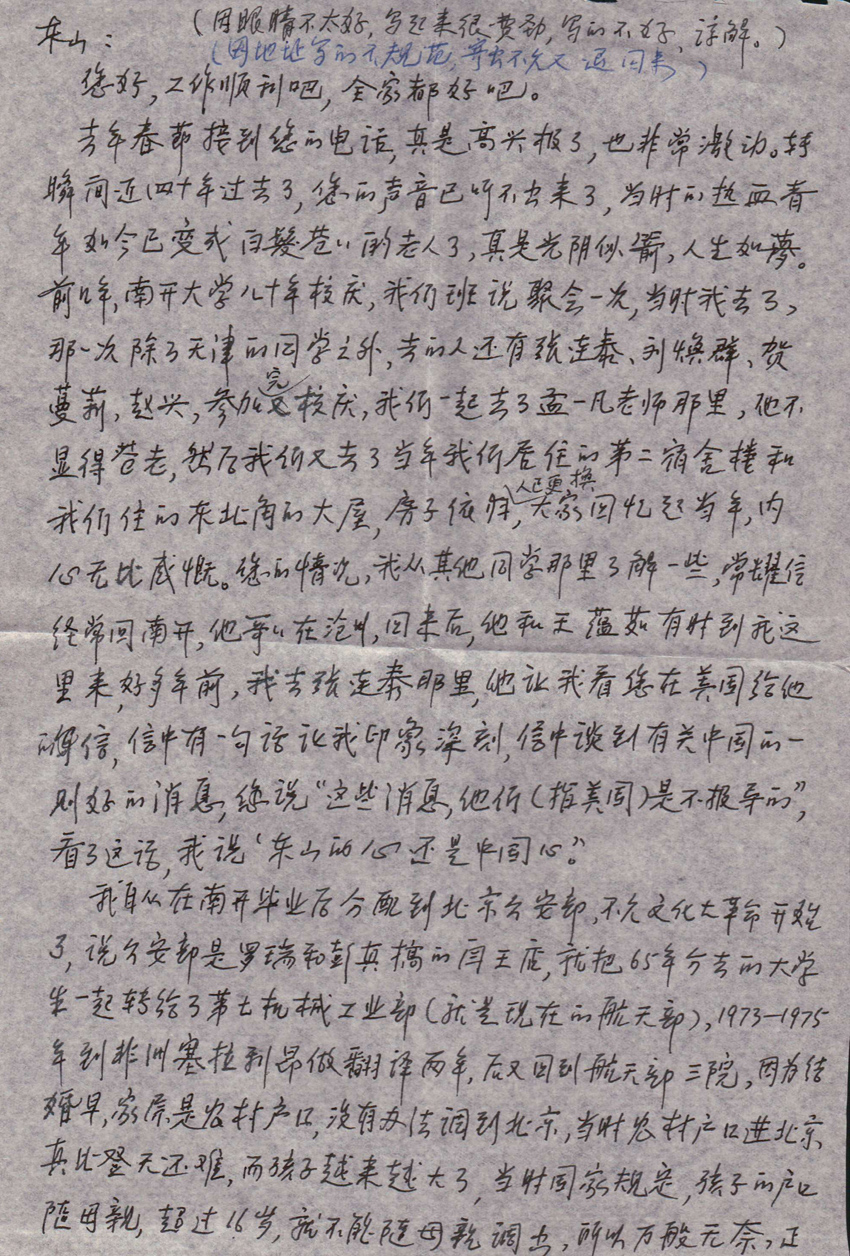 东山：（因眼睛不太好，写起来很费劲，写的不好，谅解。）
（因地址写的不规范，寄出不久又退回来）
您好，工作顺利吧，全家都好吧。
去年春节接到您的电话，真是高兴极了，也非常激动。转
瞬间近四十年过去了，您的声音已听不出来了，当时的热血青
年如今已变成白发苍苍的老人了，真是光阴似箭，人生如梦。
前年，南开大学八十年校庆，我们班说聚会一次，当时我去了，
那一次除了天津的同学之外，去的人还有张连泰、刘焕群、贺
蔓莉，赵兴，参加完校庆，我们一起去了孟一凡老师那里，他不
显得苍老，然后我们又去了当年我们居住的第二宿舍楼和
我们住的东北角的大屋，房子依旧，人已更换，大家回忆起当年，内
心无比感慨。您的情况，我从其他同学那里了解一些，常耀信
经常回南开，他哥哥在沧州，回来后，他和王蕴茹有时到我这
里来，好多年前，我去张连泰那里，他让我看您在美国给他
的信，信中有一句话让我印象深刻，信中谈到有关中国的一
则好的消息，您说“这些消息，他们（指美国）是不报导的”，
看了这话，我说‘东山的心还是中国心’。
我自从在南开毕业后分配到北京公安部，不久文化大革命开始
了，说公安部是罗瑞和彭真搞的阎王店，就把65年分去的大学
生一起转给了第七机械工业部（就是现在的航天部），1973—1975
年到非洲塞拉利昂做翻译两年，后又回到航天部三院，因为结
婚早，家属是农村户口，没有办法调到北京，当时农村户口进北京
真比登天还难，而孩子越来越大了，当时国家规定，孩子的户口
随母亲，超过16岁，就不能随母亲调出，所以万般无奈，正